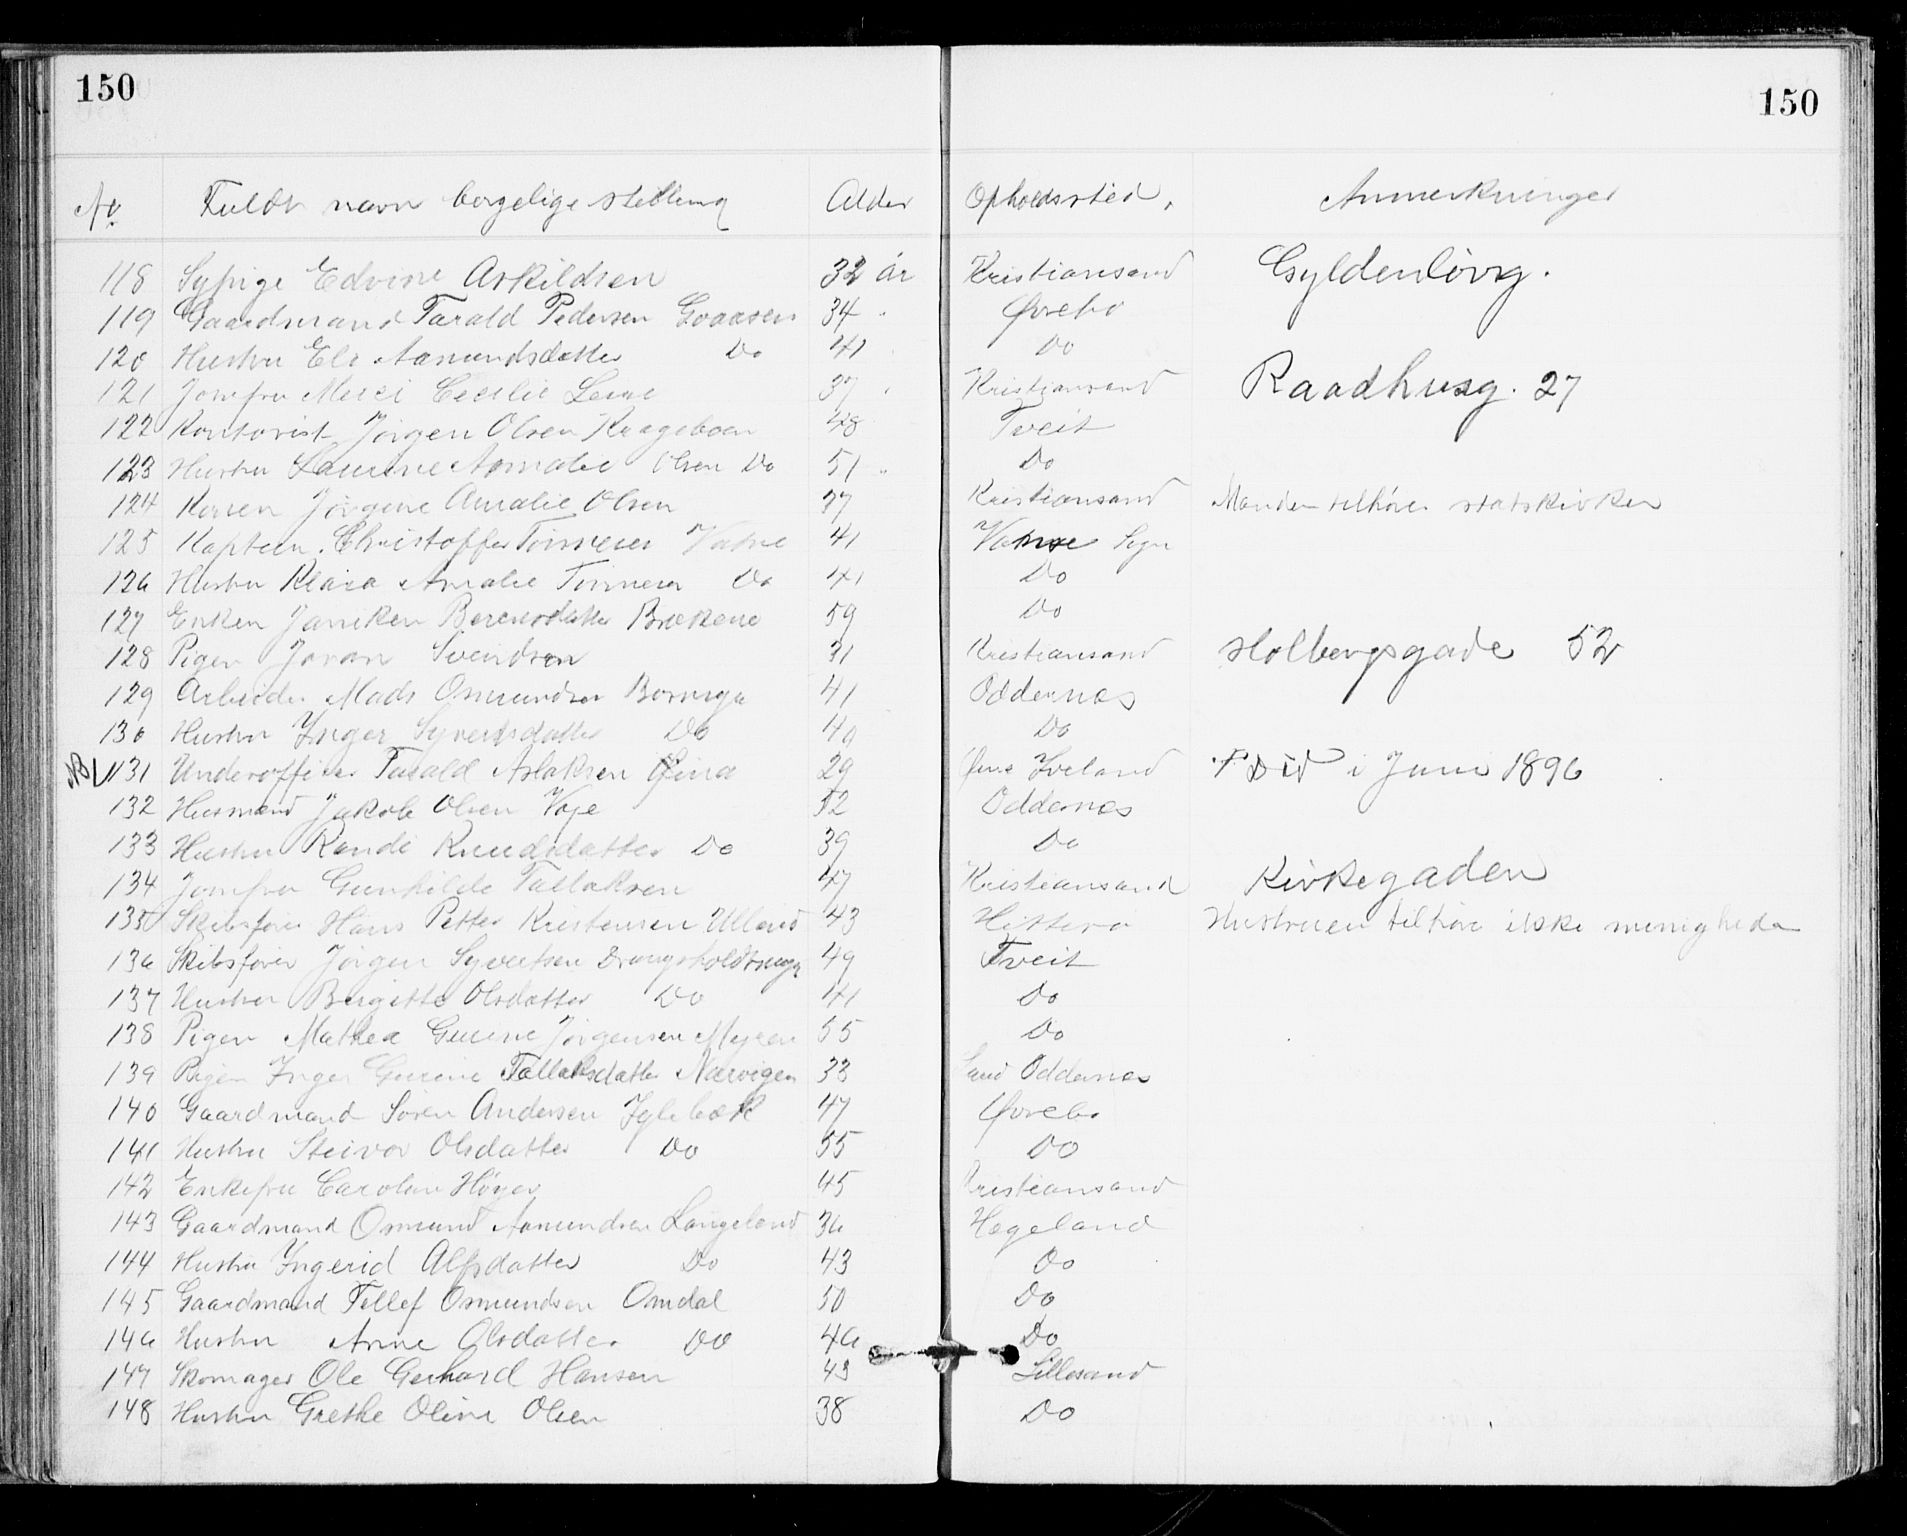 150 150
No Fuldt navn borgelige stilling Alder Opholdssted, Anmerkninger
118 Sypige Edvine Askildsen 32 år Kristiansand Gyldenløvg.
119 Gaardmand Tarald Pedersen Goaasen 34 " Øvrebo
120 Hustru Eli Aamundsdatter Do 41 Do
121 Jomfru Merci Cecilie Leine 37 " Kristiansand Raadhusg. 27
122 Kontorist Jørgen Olsen Krageboen 48 Tveit
123 Hustru Laurine Amalie Olsen Do 51 " Do
124 Konen Jørgine Amalie Olsen 37 Kristiansand Manden tilhører statskirken
125 Kaptein Christoffer Tønnesen Vatne 41 Vatne Sogn
126 Hustru Klara Amalie Tønnesen Do 41 Do
127 Enken Janiken Berentsdatter Brekene 59 Do
128 Pigen Joran Svendsen 31 Kristiansand Holbergsgade 52
129 Arbeider Mads Osmundsen 41 Oddernes
130 Hustru Inger Syvertsdatter Do 40 Do
NB 131 Underofficer Tarald Aslaksen 29 Iveland † Død i Juni 1896
132 Husmand Jakob Olsen Voje 52 Oddernes
133 Hustru Randi Knudsdatter Do 39 Do
134 Jomfru Gunhilde Tallaksen 47 Kristiansand Kirkegaden
135 Skibsfører Hans Petter Kristensen Ulland 43 Hitterø Hustruen tilhøre ikke menigheden
136 Skibsfører Jørgen Syvertsen Drangsholdtmyr 49 Tveit
137 Hustru Birgitte Olsdatter Do 41 Do
138 Pigen Mathea Gurine Jørgensen Myren 55 Do
139 Pigen Inger Gurine Tallaksdatter Narvigen 33 Oddernes
140 Gaardmand Søren Andersen Iglebæk 47 Øvrebo
141 Hustru Steivor Olsdatter Do 55 Do
142 Enkefru Caroline Høyer 45 Kristiansand
143 Gaardmand Osmund Aamundsen Langeland 36 Hægeland
144 Hustru Ingerid Alfsdatter Do 43 Do
145 Gaardmand Tellef Osmundsen Omdal 50 Do
146 Hustru Anne Olsdatter Do 46 Do
147 Skomager Ole Gerhard Hansen 43 Lillesand
148 Hustru Grethe Oline Olsen 38 Do